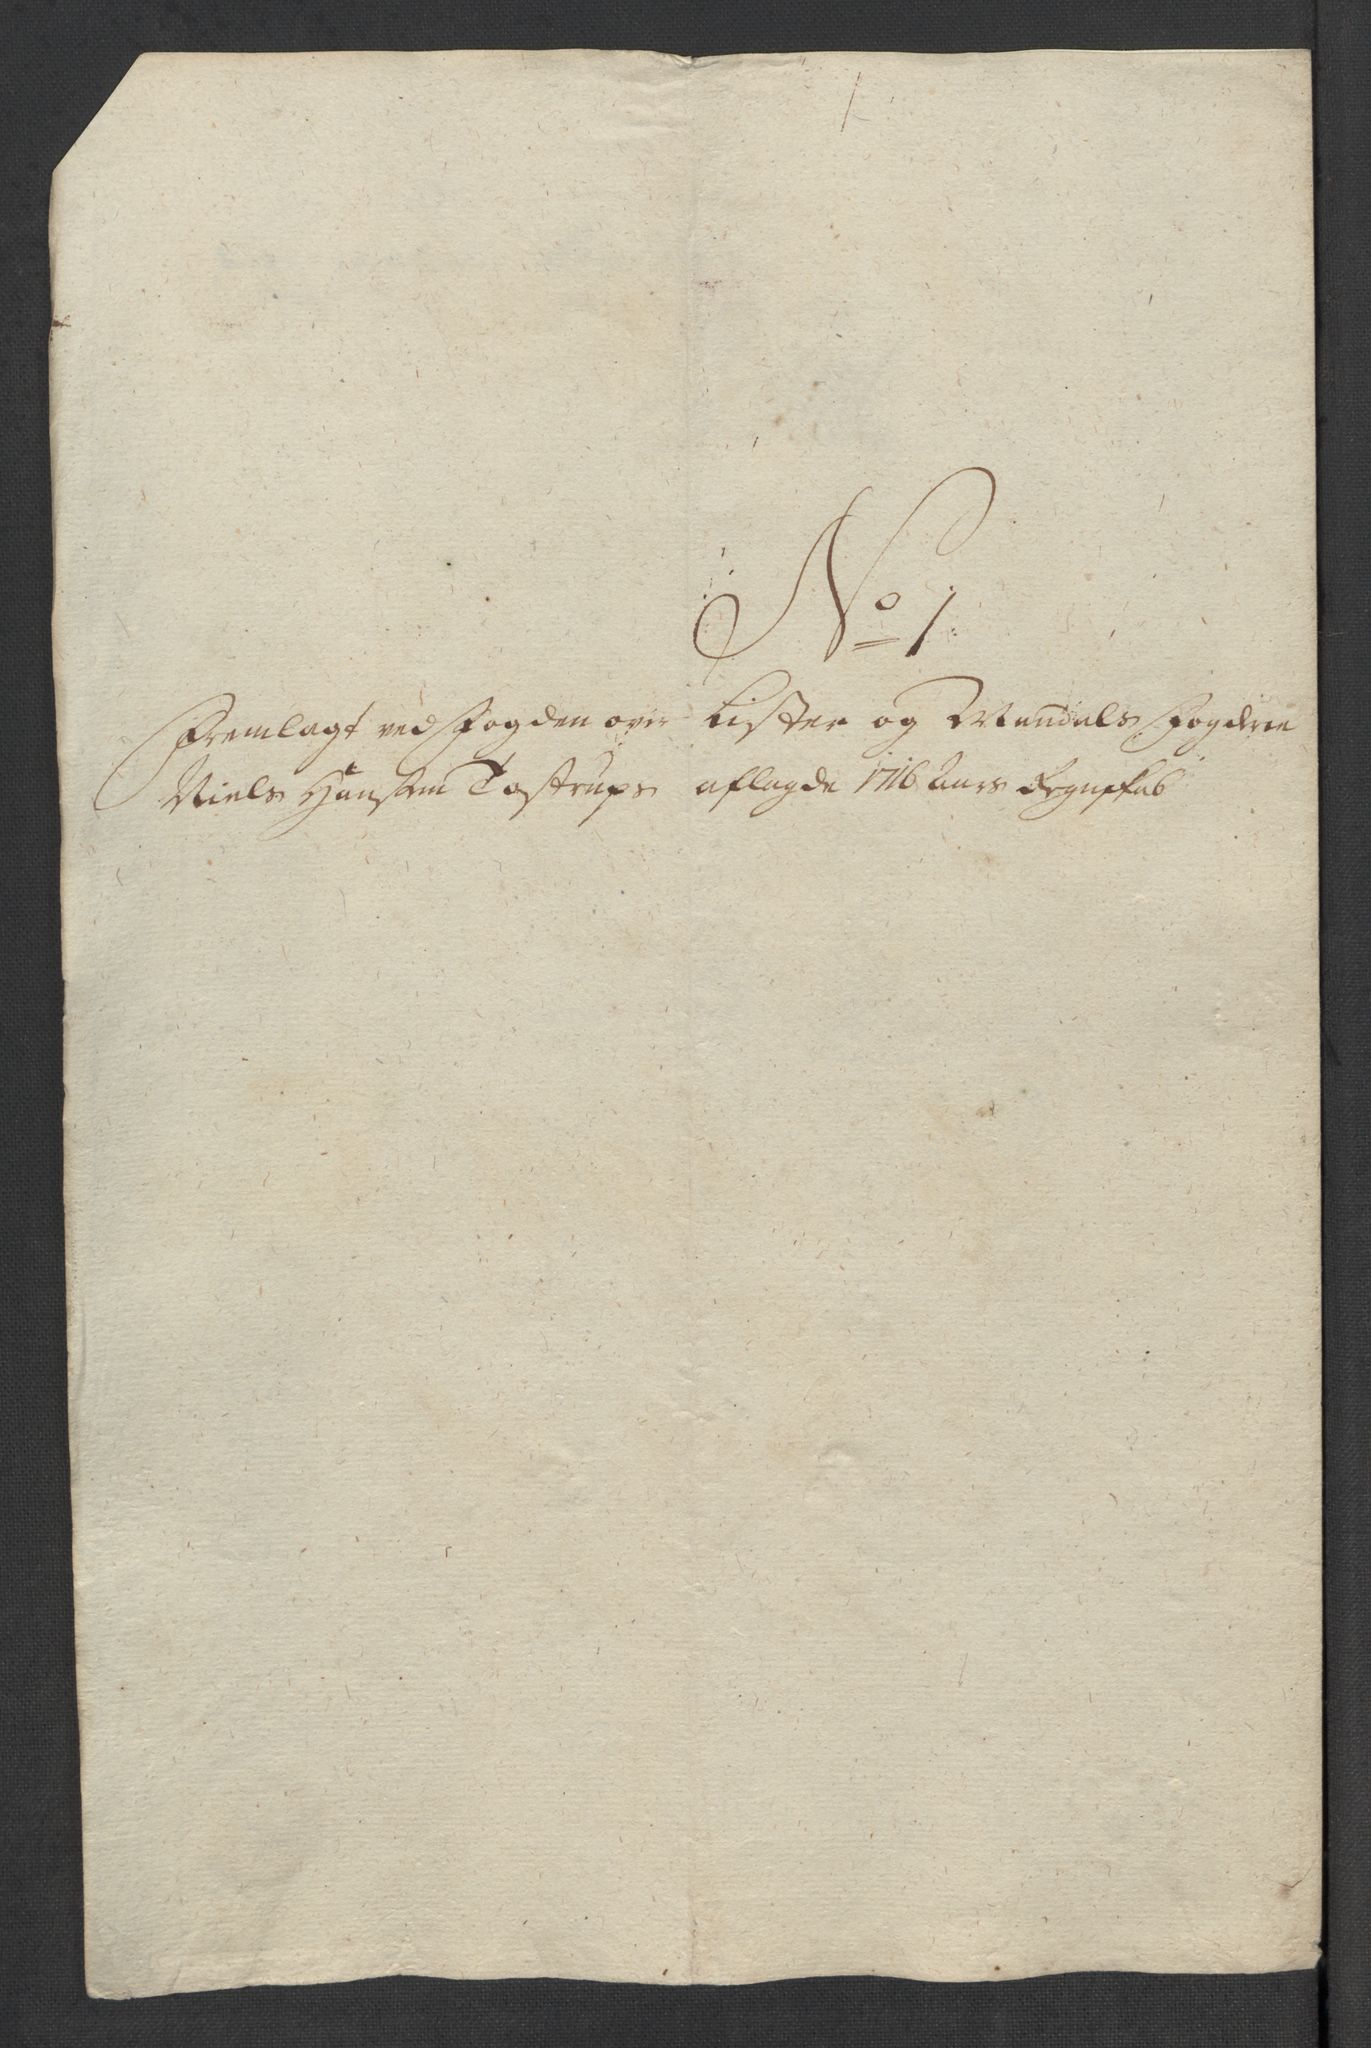 No 1
Fremlagt ved Fogden over Lister og Mandals Fogderie
Niels Hansen Tostrups aflagde 1716 Aars Regnskab